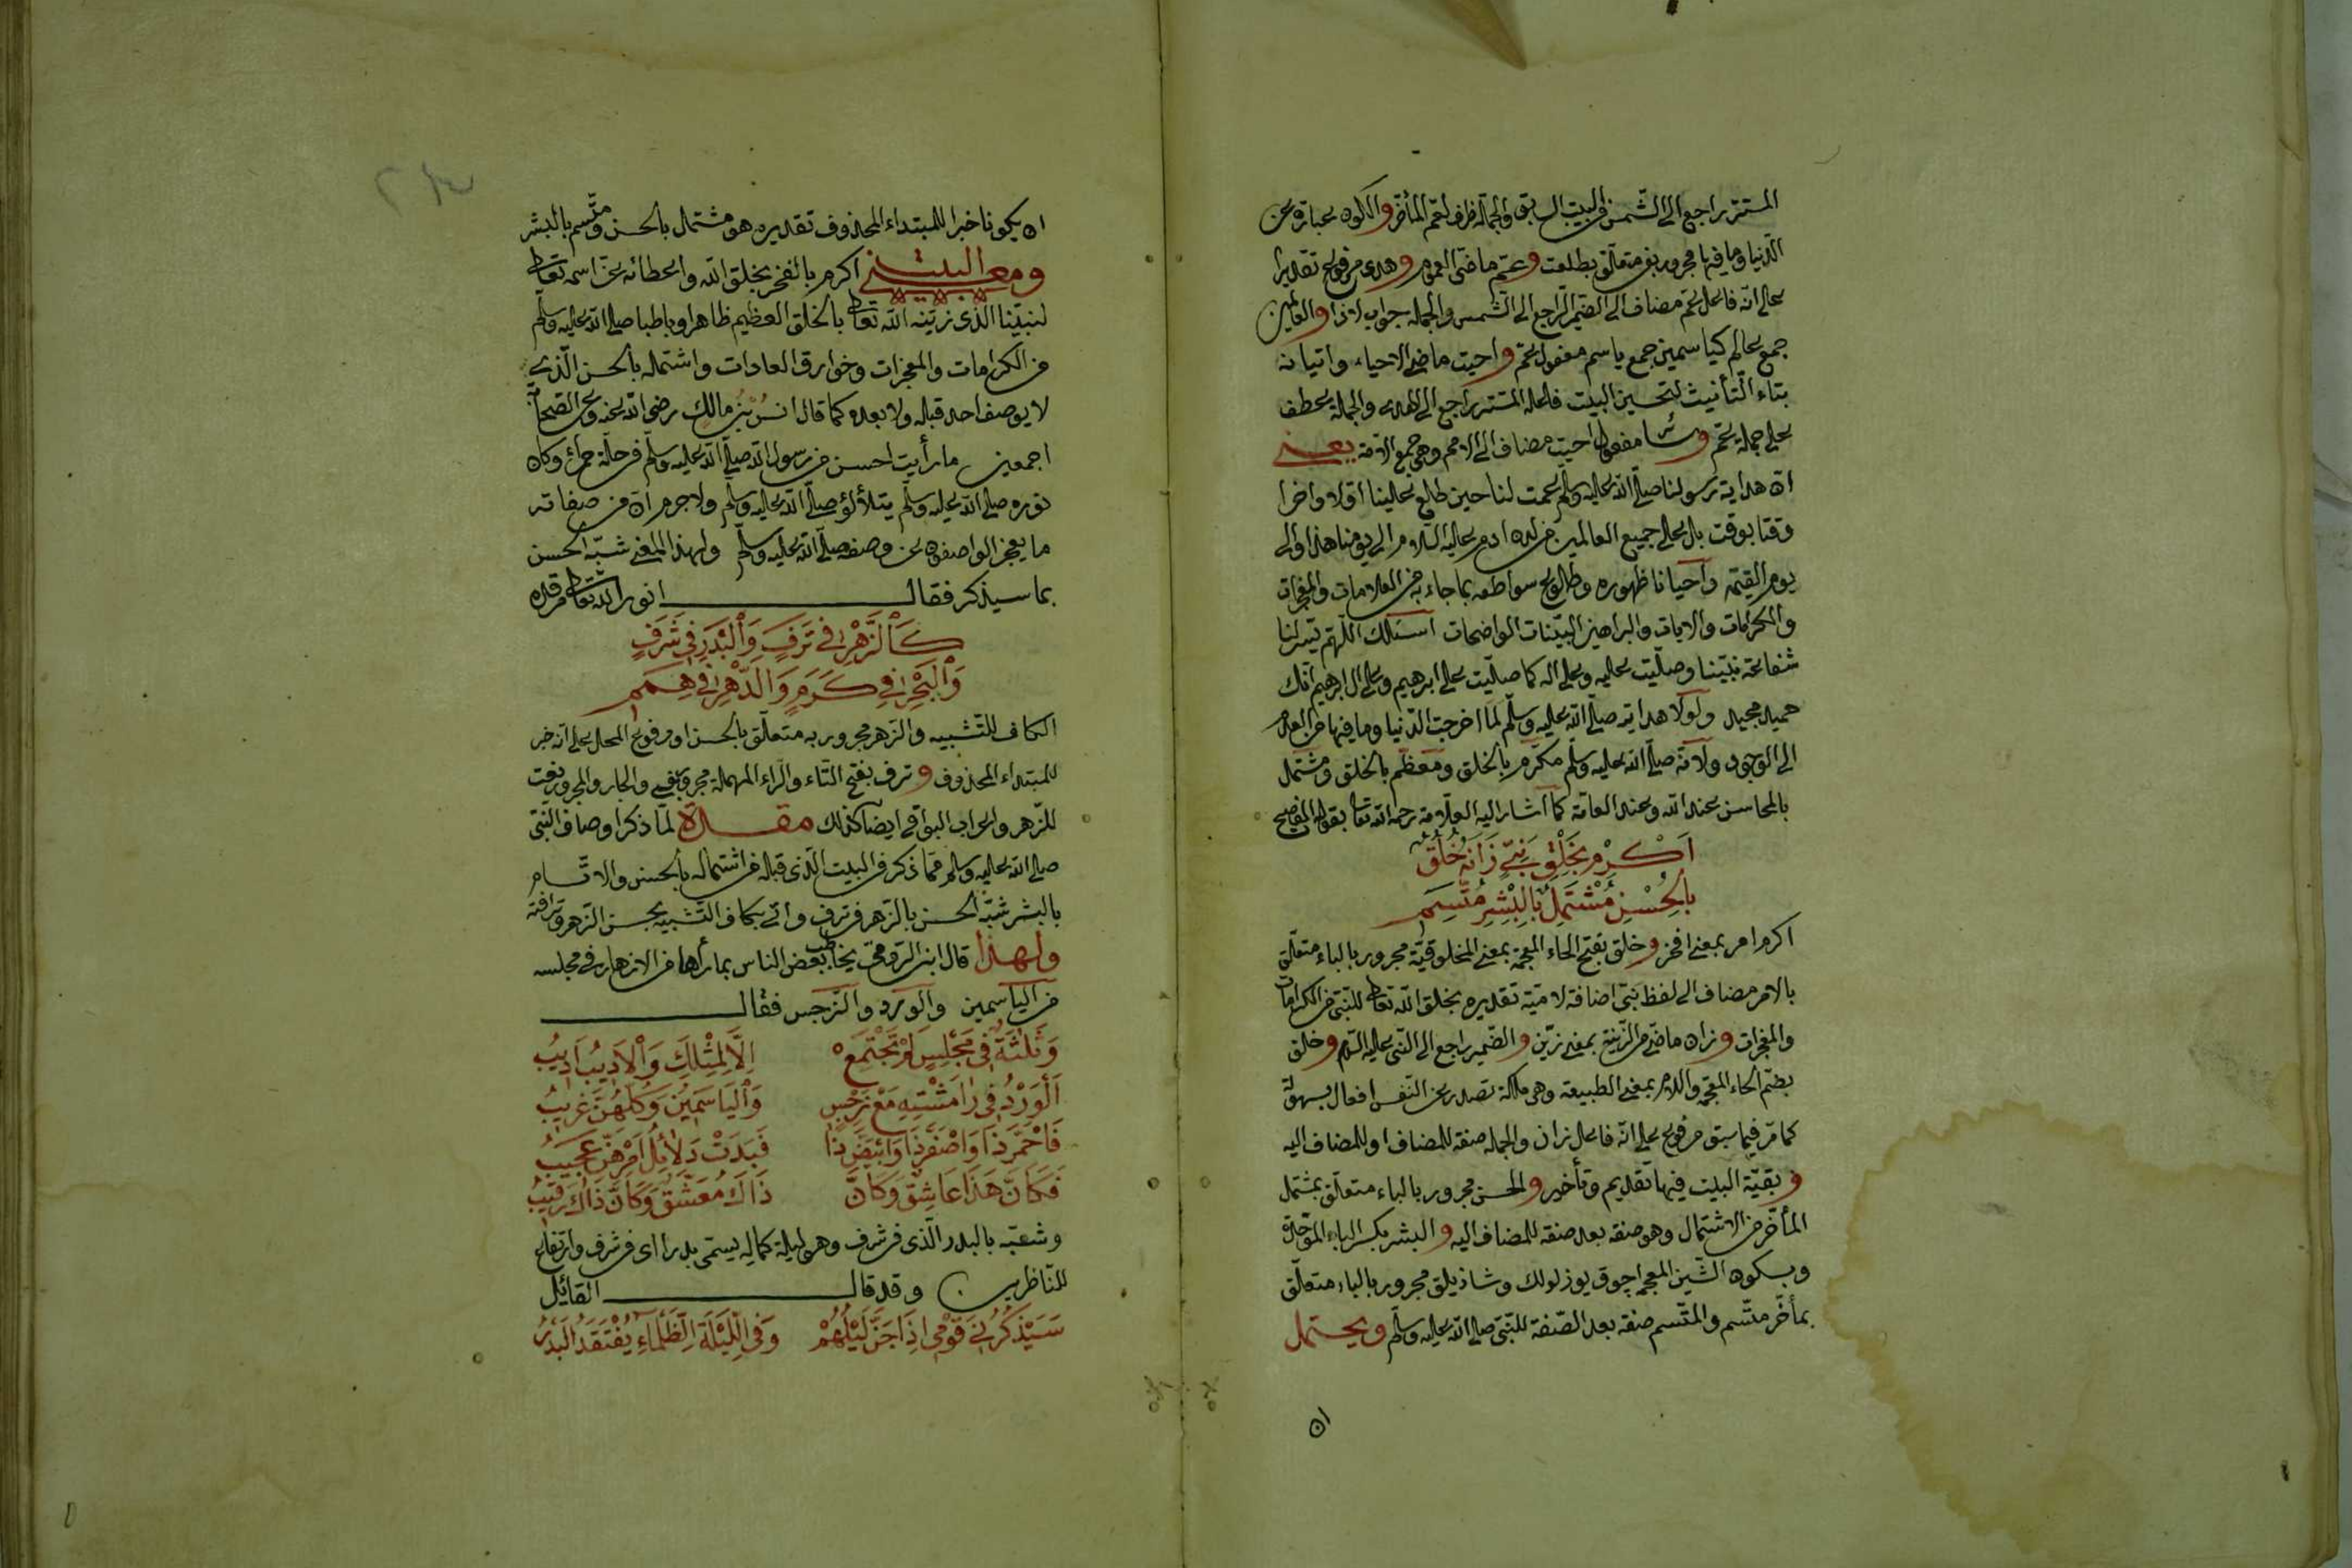 المستتر راجع الى الشمس فى البيت السابق والجملة ظرف لعم المأخر والكون عبارة عن
الدنيا وما فيها مجرور بفى متعلق بطلعت وعمّ ماضى العموم وهدى مرفوع تقديرا
على انه فاعل عمّ مضاف الى الضمير الراجع الى الشمس والجملة جواب لاذا والعالمين
جمع عالم كياسمين جمع ياسم مفعول عمّ واحيت ماضى الاحياء واتيانه
بتاء التأنيث لتحسين البيت فاعله المستتر راجع الى الهدى والجملة عطف
على جملة عمّ وسائر مفعول احيت مضاف الى الامم وهى جمع الامة يعنى
ان هداية رسولنا صلى الله عليه وسلم عمت لنا حين طلع علينا اولا واخرا
وقتا بوقت بل على جميع العالمين من لدن ادم عليه السلام الى يومنا هذا والى
يوم القيمة واحيانا ظهوره وطلوع سواطعه بما جاء به من العلامات والمعجزات
والمكرامات والايات والبراهين البينات الواضحات اسئلك اللهم يسر لنا
شفاعة نبينا وصليت عليه وعلى اله كما صليت على ابرهيم وعلى ال ابرهيم انك
حميد مجيد ولولا هدايته صلى الله عليه وسلم لما اخرجت الدنيا وما فيها من العدم
الى الوجود ولانه صلى الله عليه وسلم مكرم بالخلق ومعظم بالخلق ومشتمل
بالمحاسن عند الله وعند العامة كما اشار اليه العلامة رحمه الله تعا بقوله الفصيح
اَكْرِمْ بِخَلْقِ نَبِيٍّ زَانَهُ خُلُقٌ
بِالْحُسْنِ مُشْتَمِلٍ بِالْبِشْرِ مُتَّسِمِ
اكرم امر بمعنى افخر وخلق بفتح الخاء المعجمة بمعنى المخلوقية مجرور بالباء متعلق
بالامر مضاف الى لفظ نبى اضافة لامية تقديره بخلق الله تعا للنبى من الكرامات
والمعجزات وزان ماضى من الزينة بمعنى زيّن والضمير راجع الى النبى عليه السلام وخلق
بضم الخاء المعجمة واللام بمعنى الطبيعة وهى ملكة تصدر عن النفس افعال بسهولة
كما مر فيما سبق مرفوع على انه فاعل زان والجملة صفة للمضاف او للمضاف اليه
وبقية البيت فيها تقديم وتأخير والحسن مجرور بالباء متعلق بمشتمل
المأخر من الاشتمال وهو صفة بعد صفة للمضاف اليه والبشر بكسر الباء الموحدة
وبسكون الشين المعجمة چوق يوزلولك وشاذيلق مجرور بالباء متعلق
بمأخر متسم والمتسم صفة بعد الصفة للنبى صلى الله عليه وسلم ويحتمل
ان
ان يكونا خبرا للمبتداء المحذوف تقديره هو مشتمل بالحسن ومتسم بالبشر
ومعنى البيت اكرم بالفخر بخلق الله واعطائه عز اسمه تعا
لنبينا الذى زينه الله تعا بالخلق العظيم ظاهرا وباطنا صلى الله عليه وسلم
من الكرامات والمعجزات وخوارق العادات واشتماله بالحسن الذى
لا يوصف احد قبله ولا بعده كما قال انس بن مالك رضى الله عنه وعن الصحابة
اجمعين ما رأيت احسن من رسول الله صلى الله عليه وسلم فى حلة حمراء وكان
نوره صلى الله عليه وسلم يتلألؤ صلى الله عليه وسلم ولا جرم ان من صفاته
ما يعجز الواصفون عن وصفه صلى الله عليه وسلم ولهذا المعنى شبّه الحسن
بما سيذكر فقال انور الله تعا مرقده
كَالزَّهْرِ فِى تَرَفٍ وَالْبَدْرِ فِى شَرَفٍ
وَالْبَحْرِ فِى كَرَمٍ وَالدَّهْرِ فِى هِمَمِ
الكاف للتشبيه والزهر مجرور به متعلق بالحسن او مرفوع المحل على انه خبر
للمبتداء المحذوف وترف بفتح التاء والراء المهملة مجرور بفى والجار والمجرور نعت
للزهر واعراب البواقى ايضا كذلك مقدمة لما ذكر اوصاف النبى
صلى الله عليه وسلم مما ذكر فى البيت الذى قبله من اشتماله بالحسن والاتسام
بالبشر شبّه الحسن بالزهر فى ترف واتى بكاف التشبيه بحسن الزهر وترافته
ولهذا قال ابن الرومى يخاطب بعض الناس بما رأها من الازهار فى مجلسه
من الياسمين والورد والنرجس فقال
وَثَلٰثَةٌ فِى مَجْلِسٍ لَمْ تَجْتَمِعْ اِلَّا لِمِثْلِكَ وَالْاَدِيبُ اَدِيبُ
اَلْوَرْدُ فِى رَامَشْتِيهِ مَعْ نَرْجِسٍ وَالْيَاسَمِينُ وَكُلُّهُنَّ غَرِيبُ
فَاحْمَرَّ ذَا وَاصْفَرَّ ذَا وَابْيَضَّ ذَا فَبَدَتْ دَلَائِلُ اَمْرِهِنَّ عَجِيبُ
فَكَانَّ هَذَا عَاشِقٌ وَكَانَّ ذَاكَ مُعَشَّقٌ وَكَانَّ ذَاكَ رَقِيبُ
وشبّه بالبدر الذى فى شرف وهى ليلة كماله يسمى بدرا اى فى شرف وارتفاع
للناظرين وقد قال القائل
سَيَذْكُرُنِى قَوْمِى اِذَا جَنَّ لَيْلُهُمْ وَفِى اللَّيْلَةِ الظَّلْمَاءِ يُفْتَقَدُ الْبَدْرُ